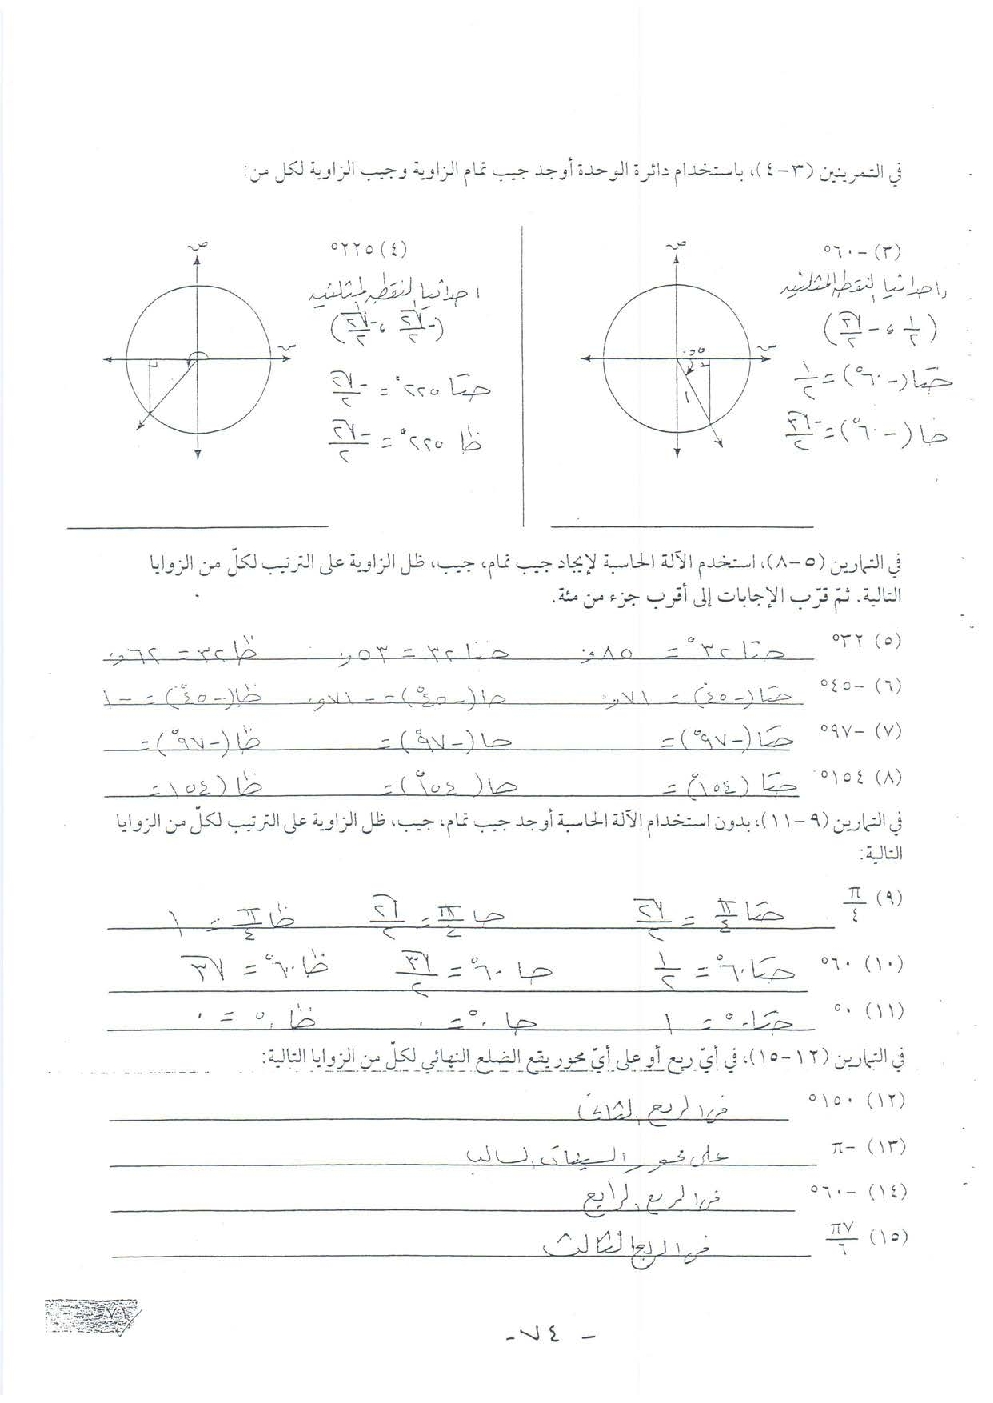 في التمرينين (٣-٤)، باستخدام دائرة الوحدة أوجد جيب تمام الزاوية وجيب الزاوية لكل من:
(٣) -٦٠°
احداثيا النقطة المثلثية
(١/٢ ، -√٣/٢)
حتا(-٦٠°) = ١/٢
حا(-٦٠°) = -√٣/٢
ص
س
٦٠°
١
(٤) ٢٢٥°
احداثيا النقطة المثلثية
(-√٢/٢ ، -√٢/٢)
حتا ٢٢٥° = -√٢/٢
ظا ٢٢٥° = -√٢/٢
ص
س
في التمارين (٥-٨)، استخدم الآلة الحاسبة لإيجاد جيب تمام، جيب، ظل الزاوية على الترتيب لكلّ من الزوايا
التالية. ثمّ قرّب الإجابات إلى أقرب جزء من مئة.
(٥) ٣٢° حتا ٣٢° = ٨٥,٠ حتا ٣٢ = ٥٣,٠ ظا ٣٢ = ٦٢,٠
(٦) -٤٥° حتا(-٤٥°) = ٧١,٠ حا(-٤٥°) = -٧١,٠ ظا(-٤٥°) = -١
(٧) -٩٧° حتا(-٩٧°) = حا(-٩٧°) = ظا(-٩٧°) =
(٨) ١٥٤° حتا (١٥٤°) = حا (١٥٤°) = ظا (١٥٤ =
في التمارين (٩-١١)، بدون استخدام الآلة الحاسبة أوجد جيب تمام، جيب، ظل الزاوية على الترتيب لكلّ من الزوايا
التالية:
(٩) π/٤ حتا π/٤ = √٢/٢ حا π/٤ = √٢/٢ ظا π/٤ = ١
(١٠) ٦٠° حتا ٦٠° = ١/٢ حا ٦٠° = √٣/٢ ظا ٦٠° = √٣
(١١) ٠° حتا ٠° = ١ حا ٠° = ٠ ظا ٠° = ٠
في التمارين (١٢-١٥)، في أيّ ربع أو على أيّ محور يقع الضلع النهائي لكلّ من الزوايا التالية:
(١٢) ١٥٠° في الربع الثاني
(١٣) -π على محور السينات السالب
(١٤) -٦٠° في الربع الرابع
(١٥) ٧π/٦ في الربع الثالث
- ٧٤ -